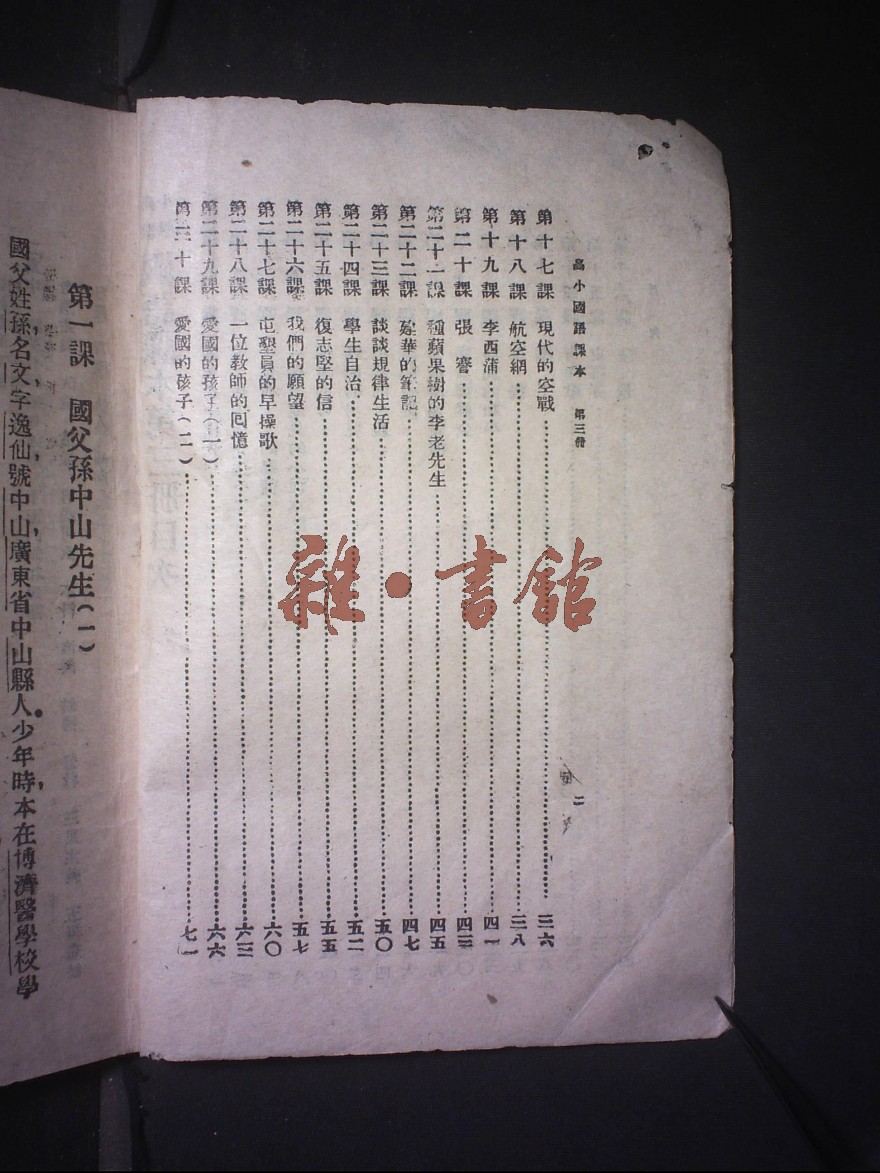 高小國語課本 第三冊
二
第十七課 現代的空戰 三六
第十八課 航空網 三八
第十九課 李西蒲 四一
第二十課 張謇 四三
第二十一課 種蘋果樹的李老先生 四五
第二十二課 建華的筆記 四七
第二十三課 談談規律生活 五〇
第二十四課 學生自治 五二
第二十五課 復志堅的信 五五
第二十六課 我們的願望 五七
第二十七課 屯墾員的早操歌 六〇
第二十八課 一位教師的回憶 六三
第二十九課 愛國的孩子(一) 六六
第三十課 愛國的孩子(二) 七一
第一課 國父孫中山先生(一)
國父姓孫,名文,字逸仙,號中山,廣東省中山縣人。少年時,本在博濟醫學校學
雜·書館